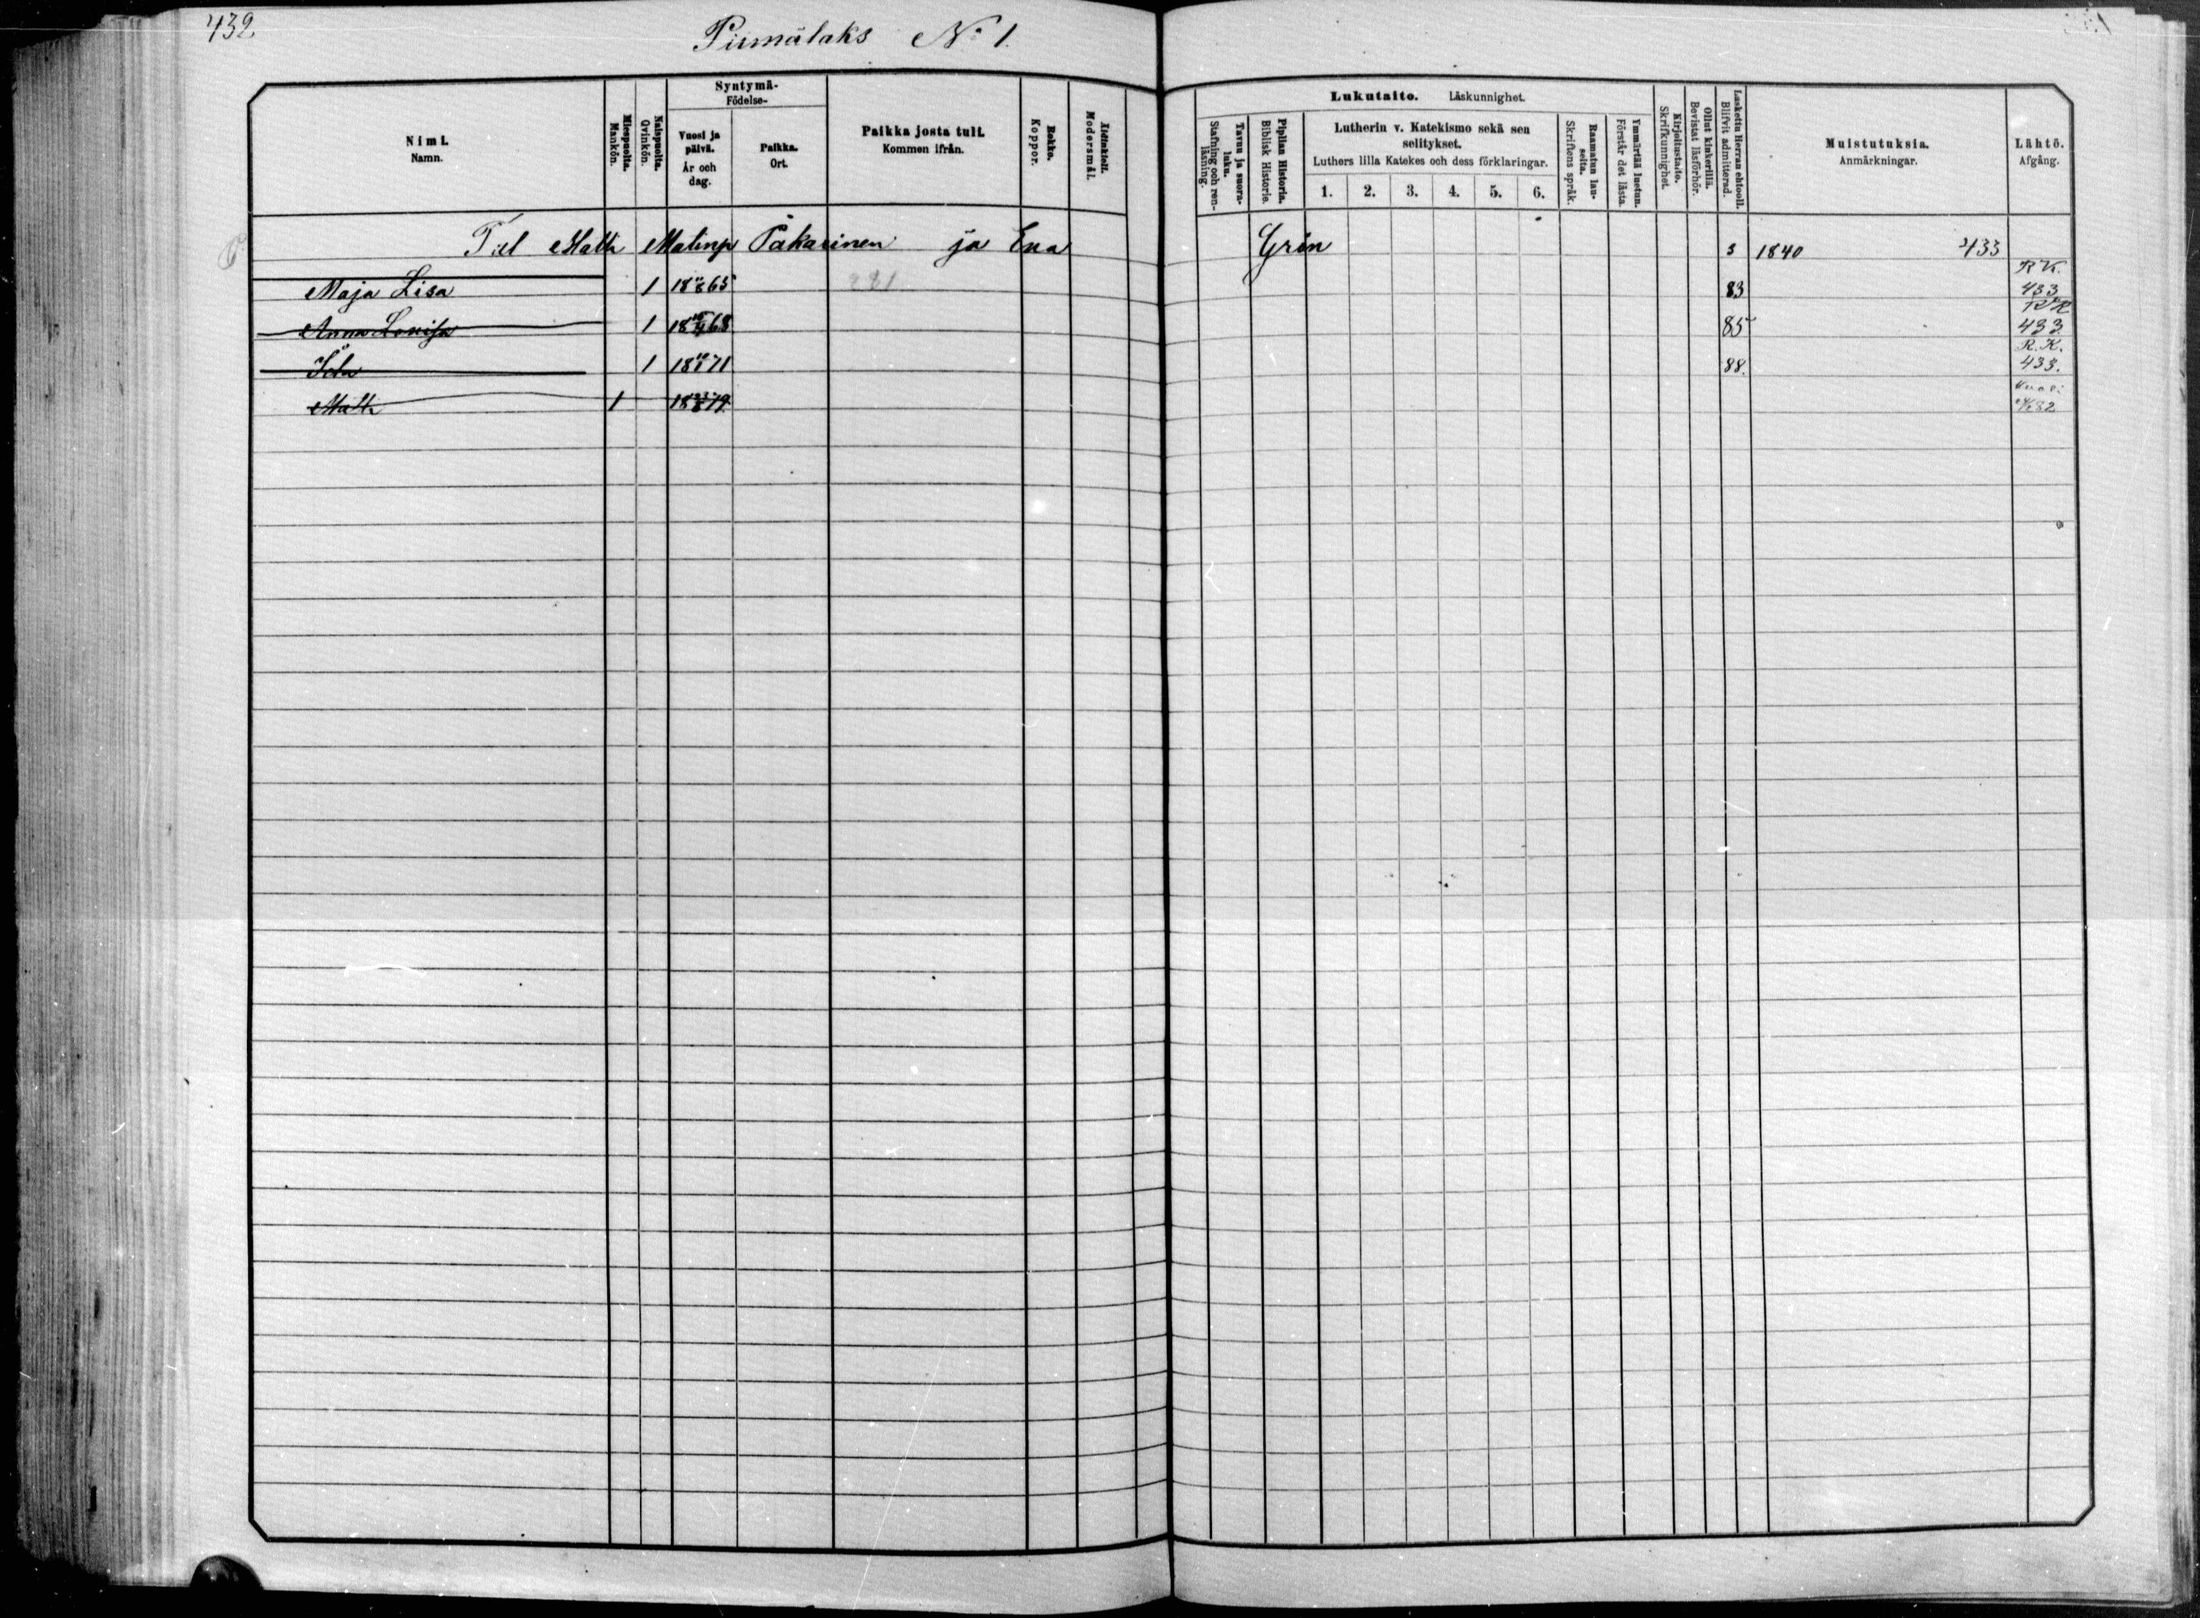 432
Piimälaks No 1.
Nimi. Namn.
Miespuolta. Mankön.
Naispuolta. Qvinkön.
Syntymä- Födelse-
Vuosi ja päivä. År och dag.
Paikka. Ort.
Paikka josta tuli. Kommen ifrån.
Rokko. Koppor.
Äidinkieli. Modersmål.
Lukutaito. Läskunnighet.
Tavuu ja suora-luku. Stafning och ren-läsning.
Piplian Historia. Biblisk Historie.
Lutherin v. Katekismo sekä sen selitykset.
Luthers lilla Katekes och dess förklaringar.
1. 2. 3. 4. 5. 6.
Raamatun lau-seita. Skriftens språk.
Ymmärtää luetun. Förstår det lästa.
Kirjoitustaito. Skrifkunnighet.
Ollut kinkerillä. Bevistat läsförhör.
Laskettu Herran ehtooll. Blifvit admitterad.
Muistutuksia. Anmärkningar.
Lähtö. Afgång.
Matti Matinp Pakarinen ja Eva Grön 1840 433
Maja Lisa 1 18 65 83 R K. 433
Anna Lovisa 1 18 68 85 R K 433
Ida 1 18 71 88. R. K. 433.
Matti 1 18 79 82